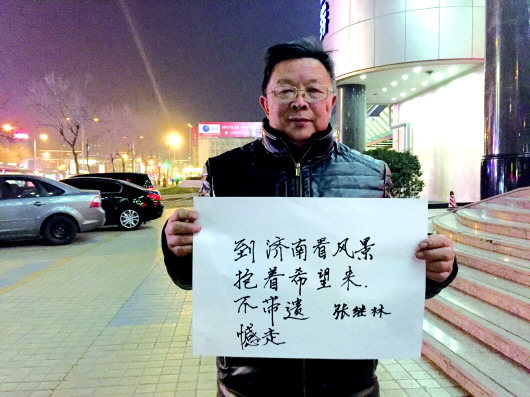 到济南看风景
抱着希望来.
不带遗 张继林
憾走